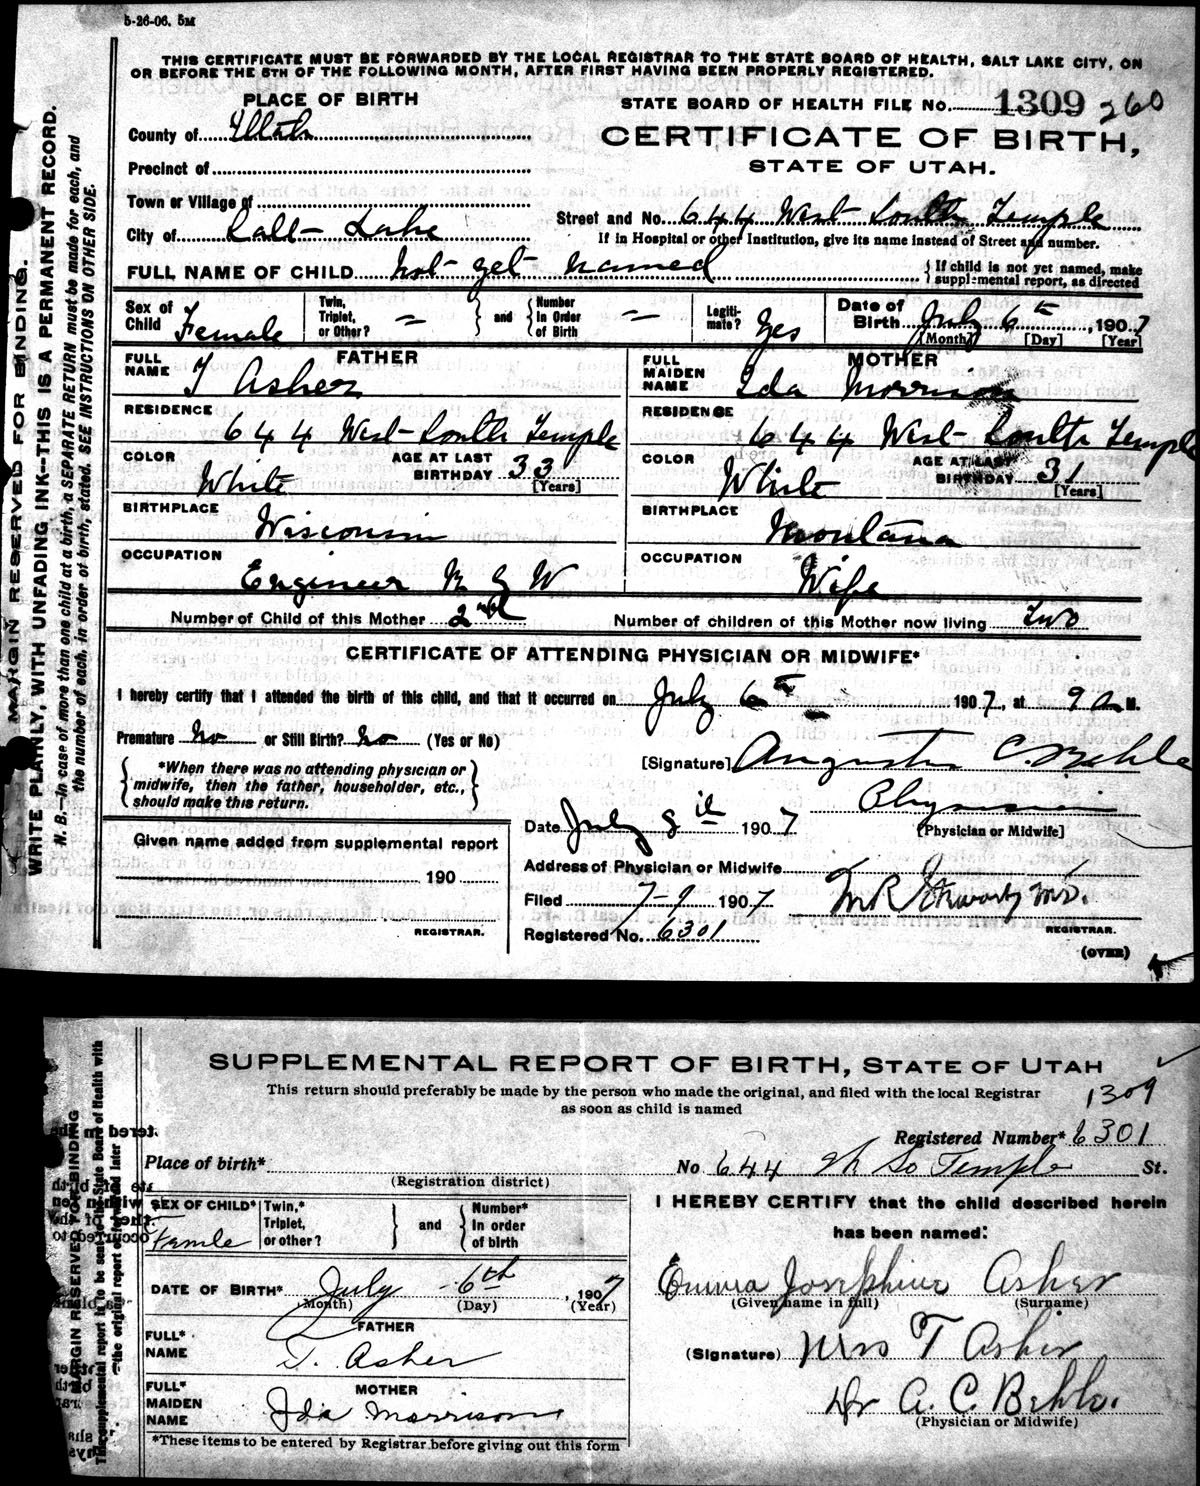 5-26-06. 5M
THIS CERTIFICATE MUST BE FORWARDED BY THE LOCAL REGISTRAR TO THE STATE BOARD OF HEALTH, SALT LAKE CITY, ON
OR BEFORE THE 5TH OF THE FOLLOWING MONTH, AFTER FIRST HAVING BEEN PROPERLY REGISTERED.
MARGIN RESERVED FOR BINDING.
WRITE PLAINLY, WITH UNFADING INK--THIS IS A PERMANENT RECORD.
N. B.—In case of more than one child at a birth, a SEPARATE RETURN must be made for each, and
the number of each, in order of birth, stated. SEE INSTRUCTIONS ON OTHER SIDE.
PLACE OF BIRTH
STATE BOARD OF HEALTH FILE No. 1309 260
County of Utah
CERTIFICATE OF BIRTH,
STATE OF UTAH.
Precinct of
Town or Village of
Street and No. 644 West South Temple
City of Salt Lake
If in Hospital or other Institution, give its name instead of Street and number.
FULL NAME OF CHILD not yet named { If child is not yet named, make
supplemental report, as directed
Sex of Child Female
Twin, Triplet, or Other? =
and
Number In Order of Birth =
Legiti-mate? Yes
Date of Birth July 6th, 1907
(Month) [Day] [Year]
FATHER
FULL NAME T Asher
MOTHER
FULL MAIDEN NAME Ida Morrison
RESIDENCE 644 West South Temple
RESIDENCE 644 West South Temple
COLOR White AGE AT LAST BIRTHDAY 33 [Years]
COLOR White AGE AT LAST BIRTHDAY 31 [Years]
BIRTHPLACE Wisconsin
BIRTHPLACE Montana
OCCUPATION Engineer R G W
OCCUPATION Wife
Number of Child of this Mother 2nd
Number of children of this Mother now living two
CERTIFICATE OF ATTENDING PHYSICIAN OR MIDWIFE*
I hereby certify that I attended the birth of this child, and that it occurred on July 6th 1907, at 9 a M.
Premature no or Still Birth? no (Yes or No)
[Signature] Augustus C. Behle
*When there was no attending physician or
midwife, then the father, householder, etc.,
should make this return.
Physician
[Physician or Midwife]
Date July 8th 1907
Given name added from supplemental report
190
REGISTRAR.
Address of Physician or Midwife
Filed 7-9 1907
M.D.
Registered No. 6301
REGISTRAR.
(OVER)
SUPPLEMENTAL REPORT OF BIRTH, STATE OF UTAH
This return should preferably be made by the person who made the original, and filed with the local Registrar
as soon as child is named
1309
MARGIN RESERVED FOR BINDING
Registered Number* 6301
Place of birth*
(Registration district)
No 644 W So Temple St.
SEX OF CHILD* Femle
Twin,* Triplet, or other?
and
Number* In order of birth
I HEREBY CERTIFY that the child described herein
has been named:
DATE OF BIRTH* July 6th, 1907
(Month) (Day) (Year)
Emma Josephine Asher
(Given name in full) (Surname)
FATHER
FULL* NAME T. Asher
(Signature) Mrs T Asher
MOTHER
FULL* MAIDEN NAME Ida Morrison
Dr A. C. Behle.
(Physician or Midwife)
*These items to be entered by Registrar before giving out this form